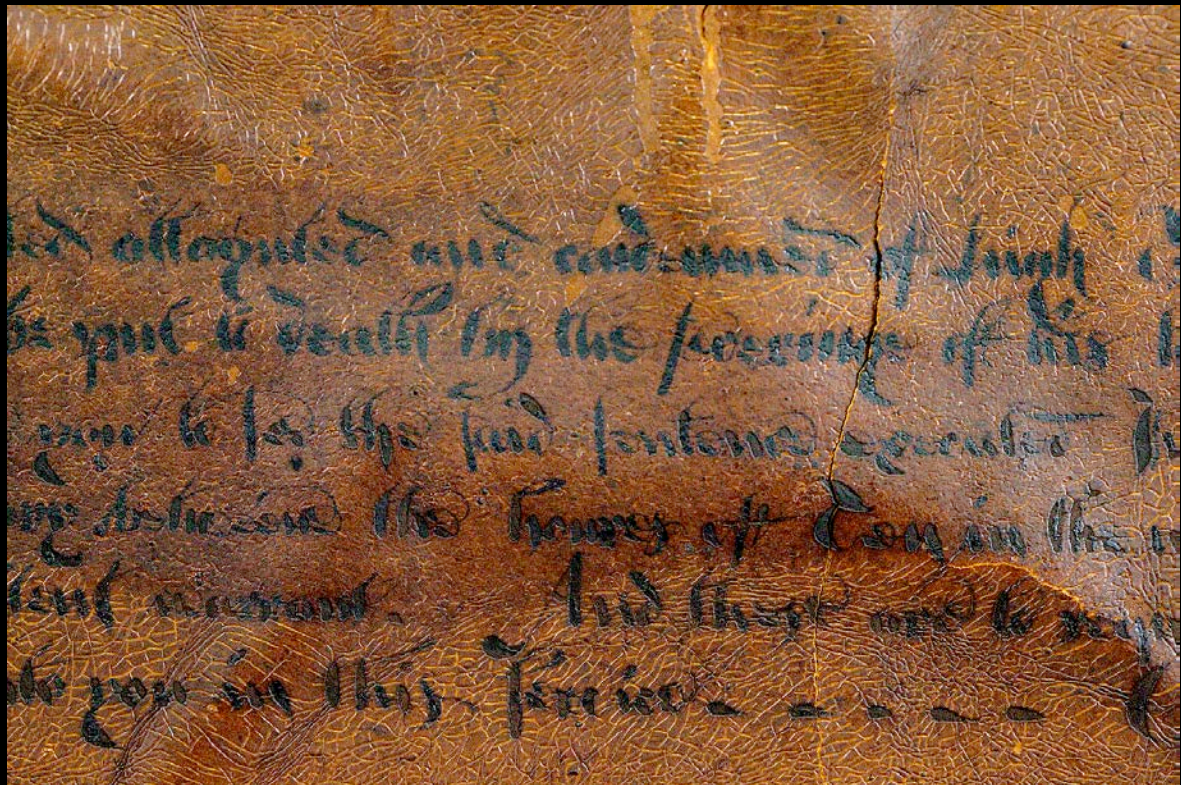 attaynted and condemned of High
putt to death by the severinge of his
you to see the said sentence executed In
betweene the houres of Tenn in the
warrant. And these are to
you in this service - - - - -